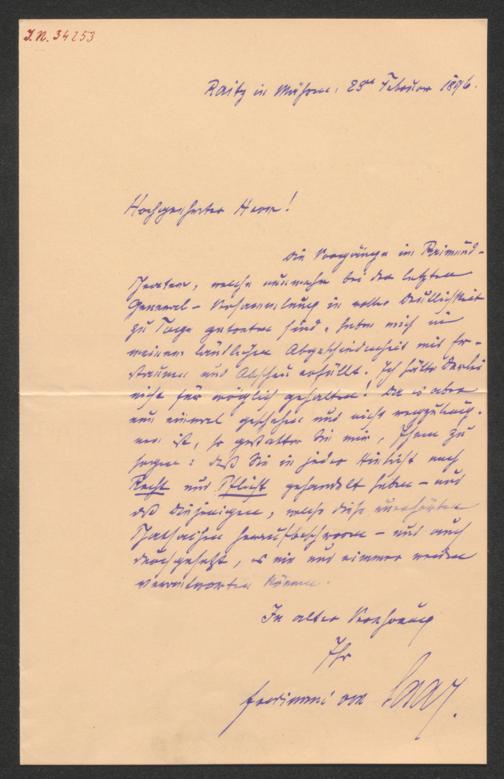 I.N. 34253
Raitz in Mähren, 28ten Februar 1896.
Hochgeehrter Herr!
Die Vorgänge im Raimund-
Theater, welche nunmehr bei der letzten
General-Versammlung in voller Deutlichkeit
zu Tage getreten sind, haben mich in
meiner ländlichen Abgeschiedenheit mit Er-
staunen und Abscheu erfüllt. Ich hätte Derlei
nicht für möglich gehalten! Da es aber
nun einmal geschehen und nicht wegzuleug-
nen ist, so gestatten Sie mir, Ihnen zu
sagen: daß Sie in jeder Hinsicht nach
Recht und Pflicht gehandelt haben – und
daß diejenigen, welche diese unerhörten
Thatsachen heraufbeschworen – und auch
durchgesetzt, es nie und nimmer werden
verantworten können.
In alter Verehrung
Ihr
Ferdinand von Saar.